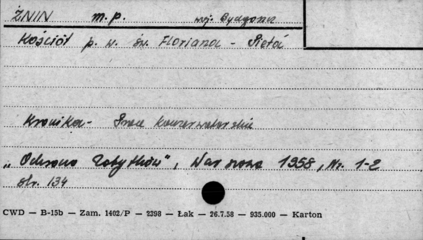 ŻNIN m.p. woj. Bydgoszcz
Kościół p. w. św. Floriana - Pietá
Kronika - Prace konserwatorskie
„Ochrona Zabytków", Warszawa 1958, Nr. 1-2
str. 134
CWD — B-15b — Zam. 1402/P — 2398 — Łak — 26.7.58 — 935.000 — Karton